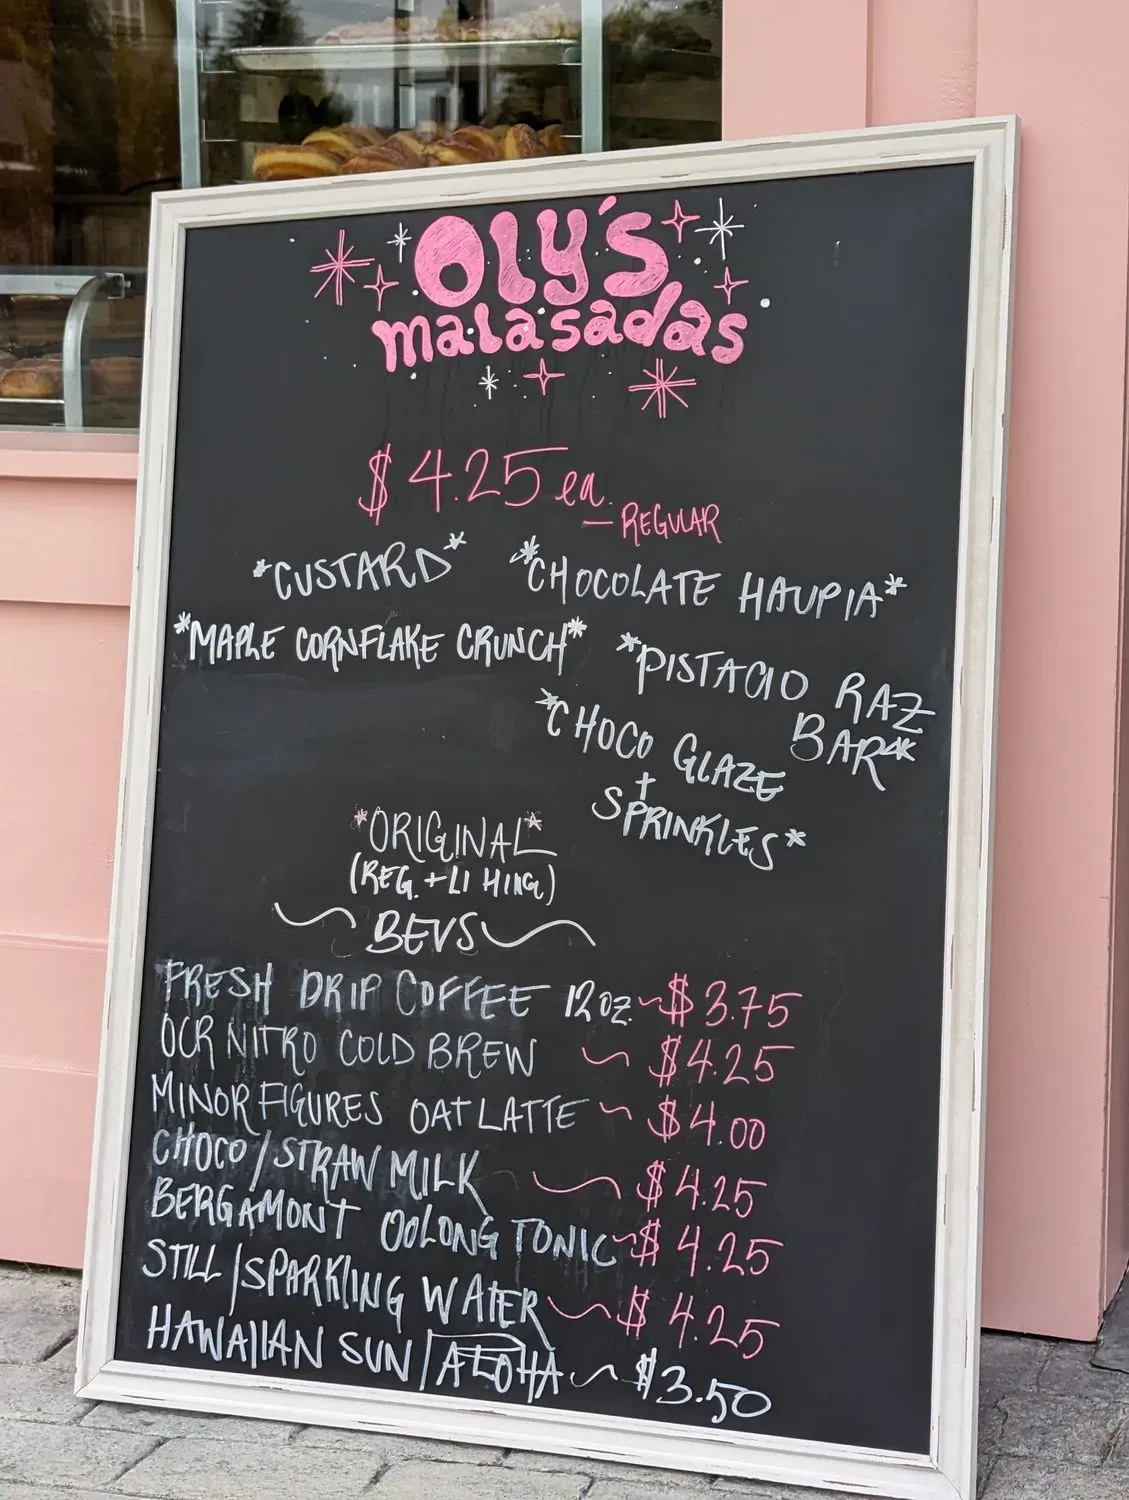 OLY'S
malasadas
$4.25 ea.
— REGULAR
*CUSTARD* *CHOCOLATE HAUPIA*
*MAPLE CORNFLAKE CRUNCH* *PISTACIO RAZ
BAR*
*CHOCO GLAZE
+
SPRINKLES*
*ORIGINAL*
(REG. + LI HING)
~ BEVS ~
FRESH DRIP COFFEE 12oz. ~ $3.75
OCR NITRO COLD BREW ~ $4.25
MINOR FIGURES OAT LATTE ~ $4.00
CHOCO/STRAW MILK ~ $4.25
BERGAMONT OOLONG TONIC ~ $4.25
STILL/SPARKLING WATER ~ $4.25
HAWAIIAN SUN/ALOHA ~ $3.50